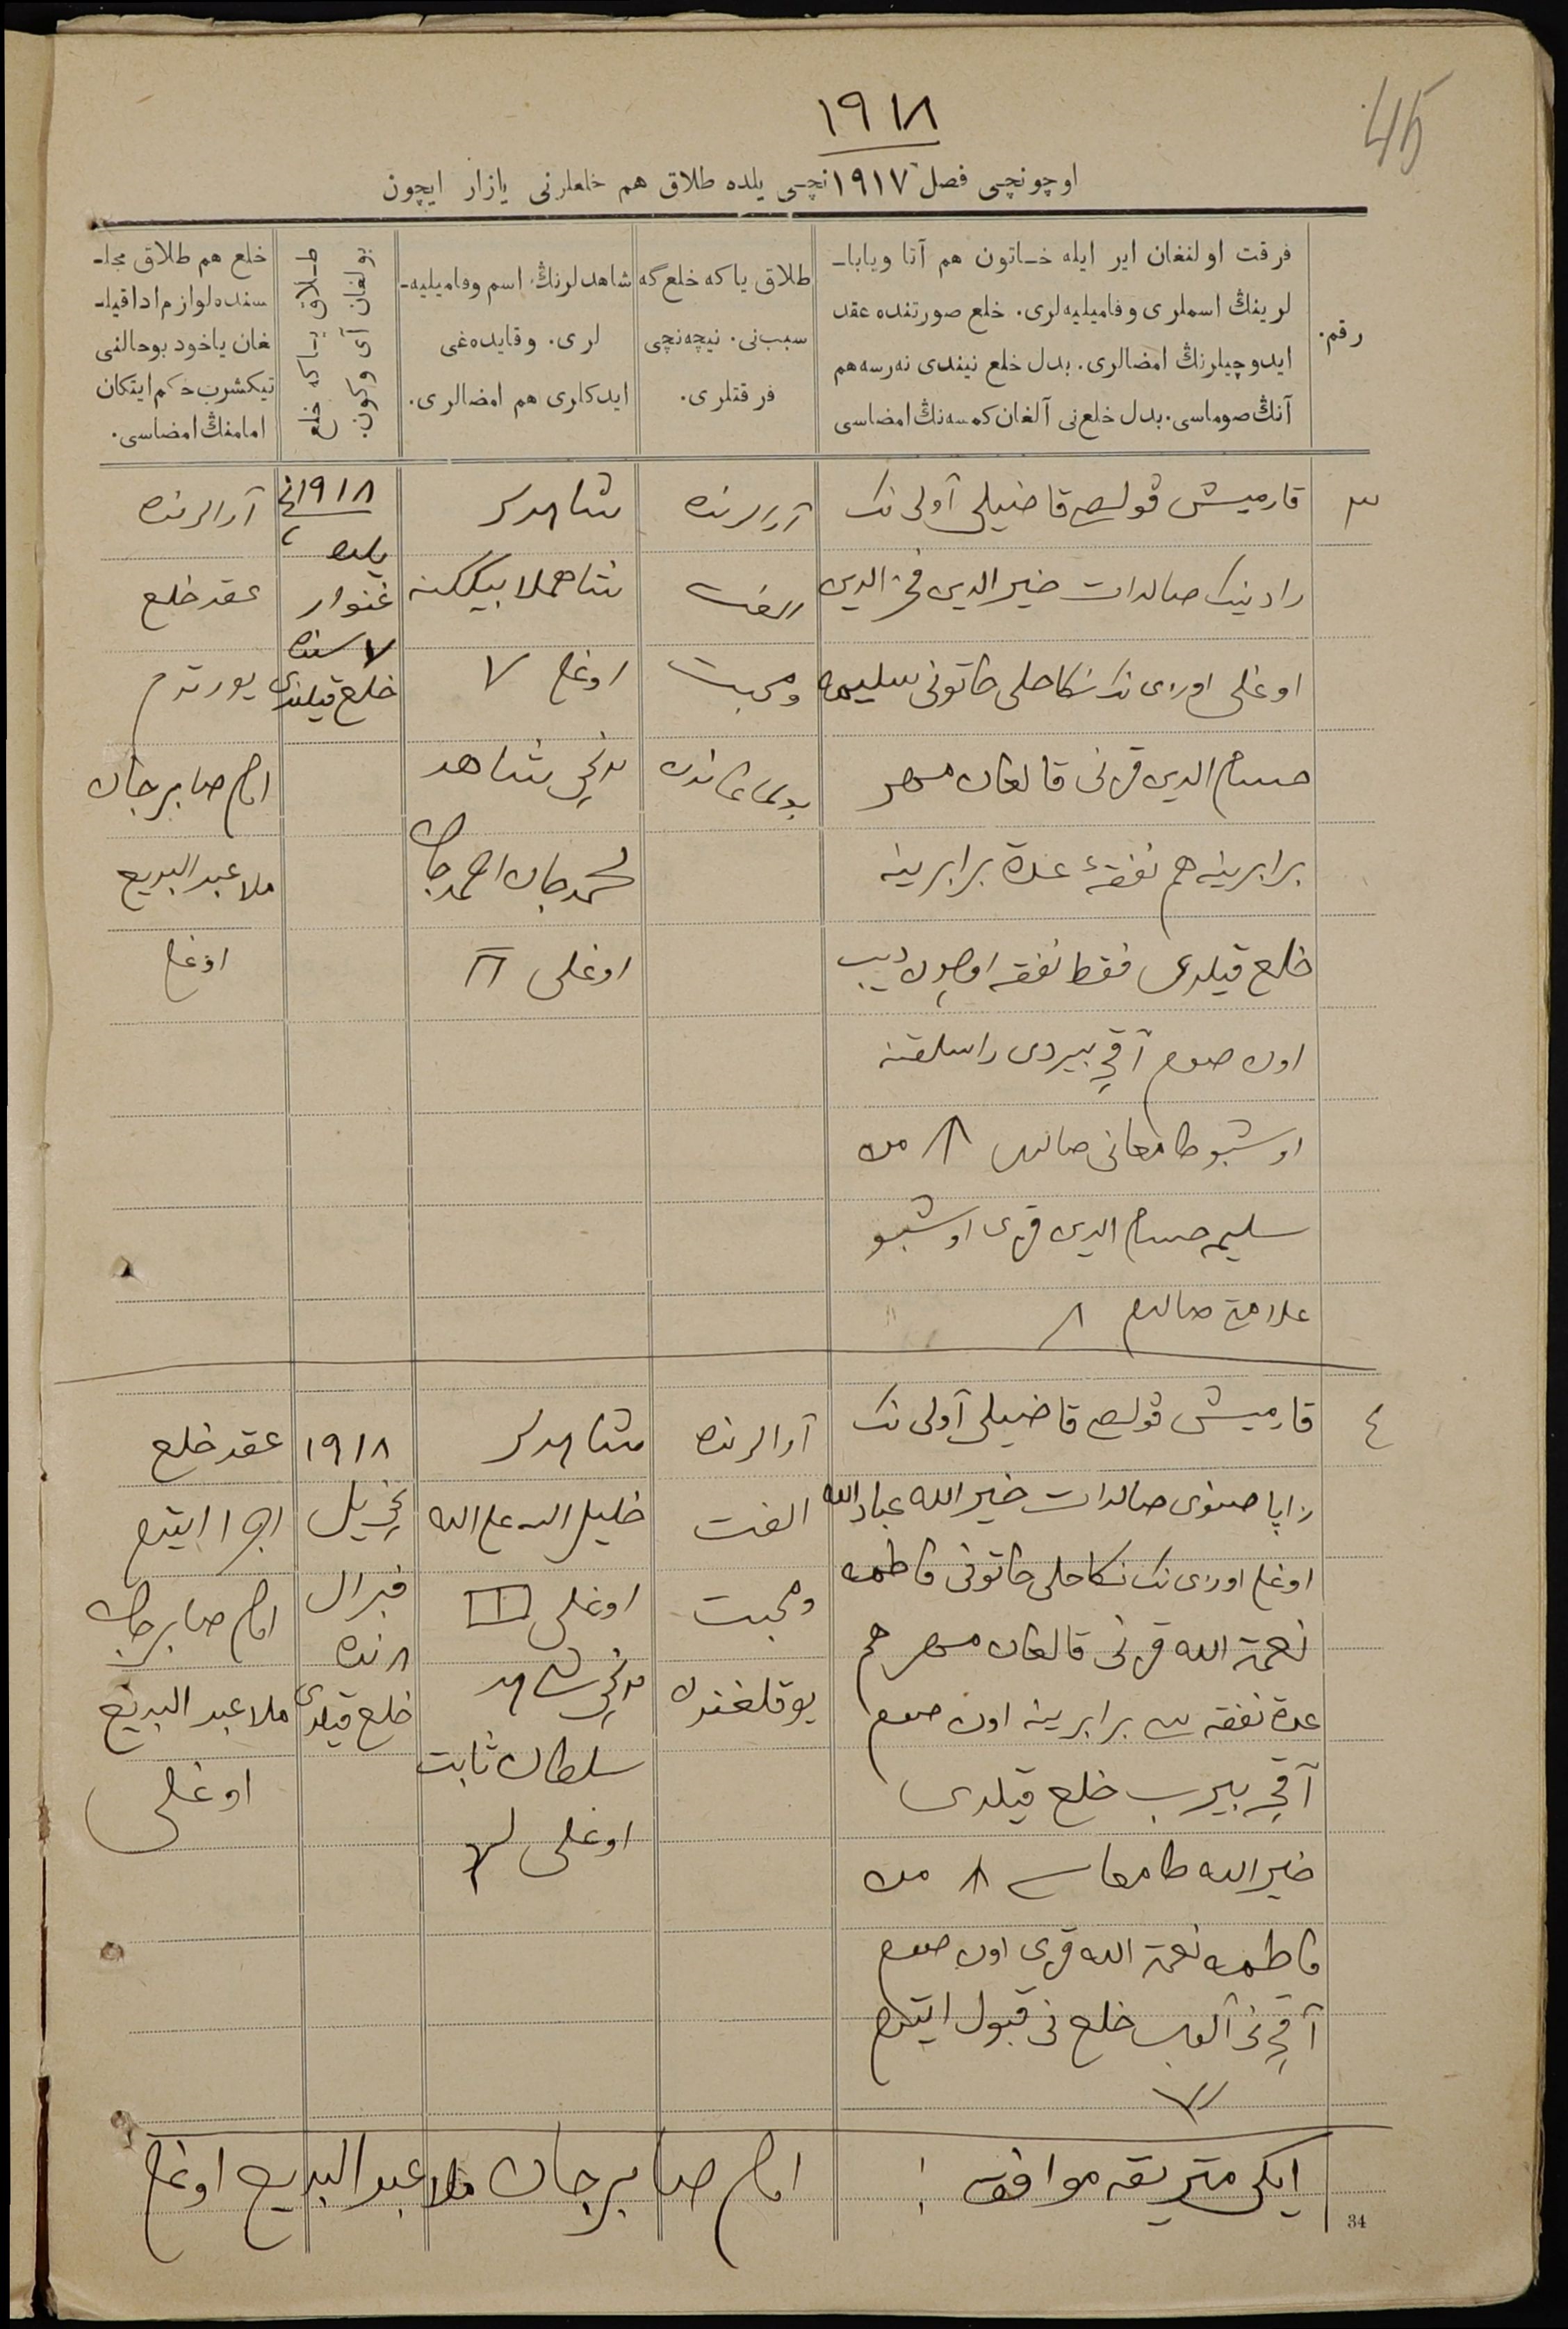 45
١٩١٨
اوچونچی فصل ١٩١٧ نچی یلده طلاق هم خلعلرنی یازار ایچون
رقم.
فرقت اولنغان ایر ایله خاتون هم آتا وبابا-
لرینڭ اسملری وفامیلیه‌لری. خلع صورتنده عقد
ایدوچیلرنڭ امضالری. بدل خلع نیندی نه‌رسه هم
آنڭ صوماسی. بدل خلع‌نی آلغان کمسه‌نڭ امضاسی
طلاق یا که خلع گه
سبب‌نی. نیچه‌نچی
فرقتلری.
شاهدلرنڭ اسم وفامیلیه-
لری. وقایده‌غی
ایدکلری هم امضالری.
طلاق یا که خلع
بولغان آی وکون.
خلع هم طلاق مجل-
سنده لوازم ادا قیل-
غان یاخود بوحالنی
تیکشرب حکم ایتکان
امامنڭ امضاسی.
٣
قارمیش قولص قاضیلی آولی نک
صالدات خیرالدین فخرالدین
اوغلی اوزی نک نکاحلی خاتونی سلیمه
حسام الدین قزنی قالغان مهر
برابرینه هم نفقهٔ عدة برابرینه
خلع قیلدی فقط نفقه اوچون دیب
اون صوم آقچه بیردی
اوشبو طامغانی صالدی من
سلیمه حسام الدین قزی اوشبو
علامة صالدم
آرالرنده
الفت
ومحبت
بولماغاندن
شاهدلر
اوغلی
ایکنچی شاهد
محمدجان احمدجان
اوغلی
١٩١٨نچی
یلده
غنوار
٧ سنده
خلع قیلندی
آرالرنده
عقد خلع
یورتدم
امام صابرجان
ملا عبدالبدیع
اوغلی
٤
قارمیش قولص قاضیلی آولی نک
زاپاصنوی صالدات خیرالله عبادالله
اوغلی اوزی نک نکاحلی خاتونی فاطمه
نعمة الله قزنی قالغان مهر هم
عدة نفقه سی برابرینه اون صوم
آقچه بیرب خلع قیلدی
خیرالله طامغاسی من
فاطمه نعمة الله قزی اون صوم
آقچه نی آلوب خلع نی قبول ایتدم
آرالرنده
الفت
ومحبت
یوقلغندن
شاهدلر
خلیل الله
اوغلی
ایکنچی شاهد
سلطان ثابت
اوغلی
١٩١٨
نچی یل
فبرال
٨ نده
خلع قیلدی
عقد خلع
اجرا ایتدم
امام صابرجان
ملا عبدالبدیع
اوغلی
ایکی متریقه موافق! امام صابرجان ملا عبدالبدیع اوغلی
34